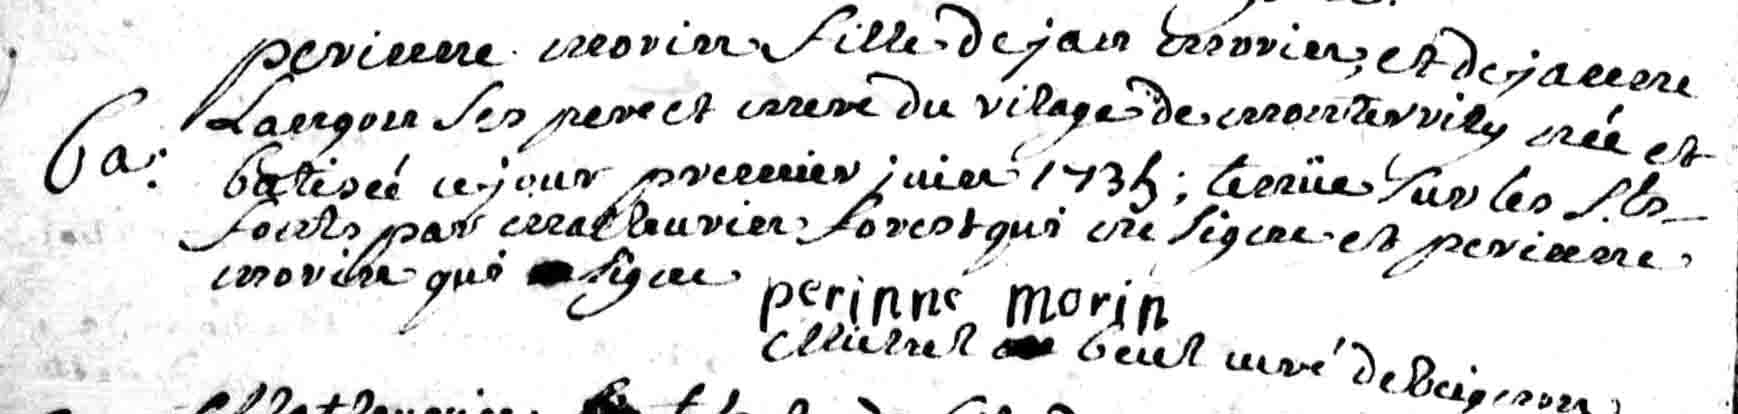 perienne morin fille de jan morin, et de janne
Langou ses pere et mere du vilage de montervily née et
ba: batiseé ce jour premier juin 1735; tenüe sur les s.ts
fonts par mathurien forest qui ne signe et perienne
morin qui signe
perinne morin
Michel beul curé de Beignon